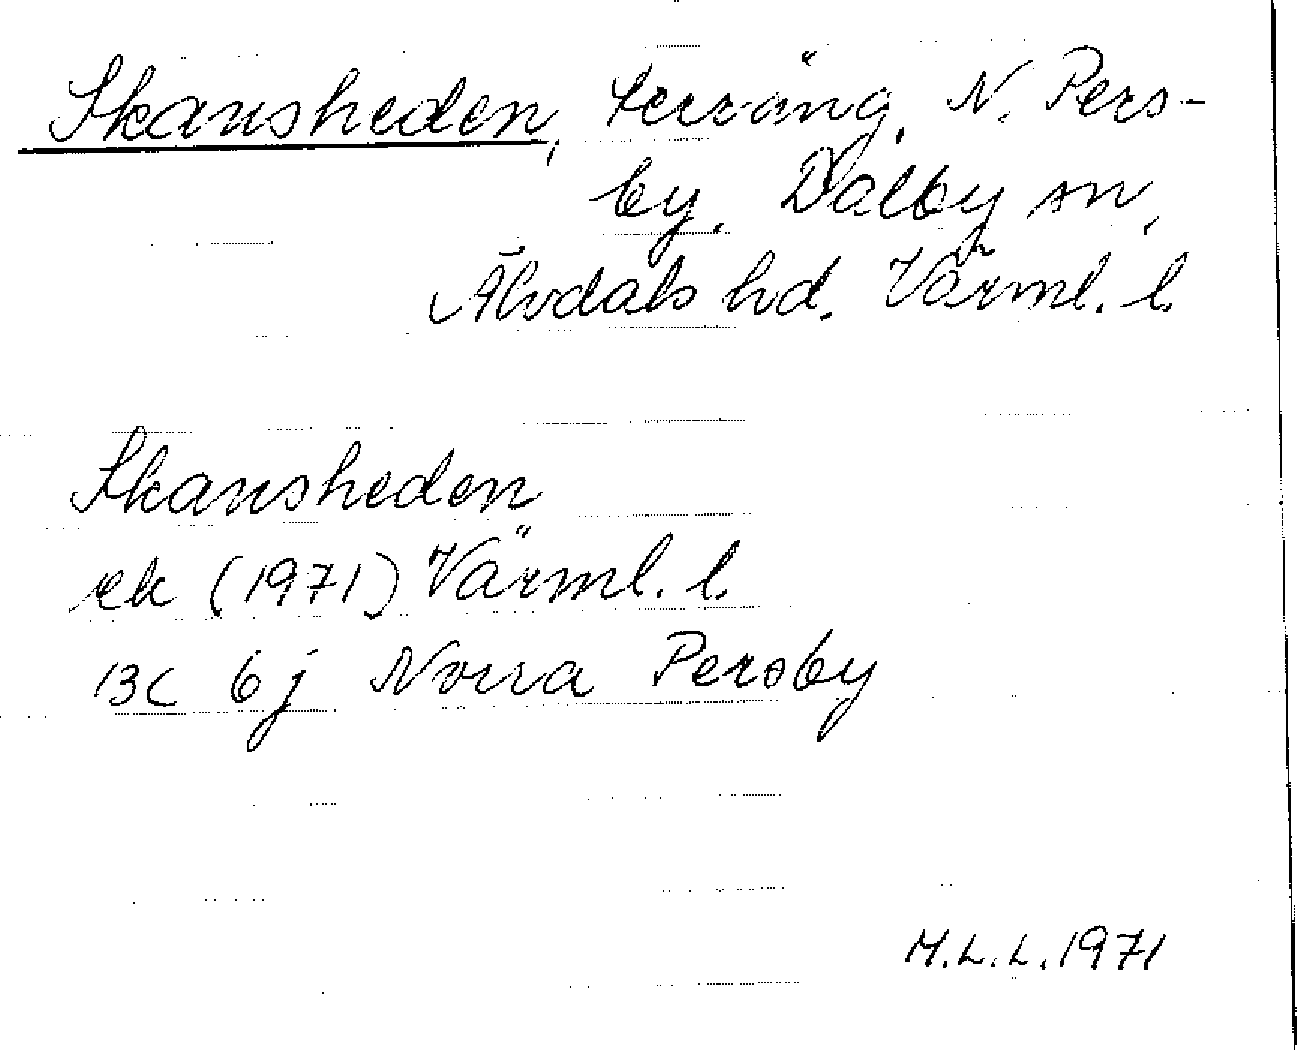 Skansheden, terräng, N. Pers-
by, Dalby sn,
Älvdals hd. Värml. l.
Skansheden
ek (1971) Värml. l.
13C 6j Norra Persby
M.L.L. 1971